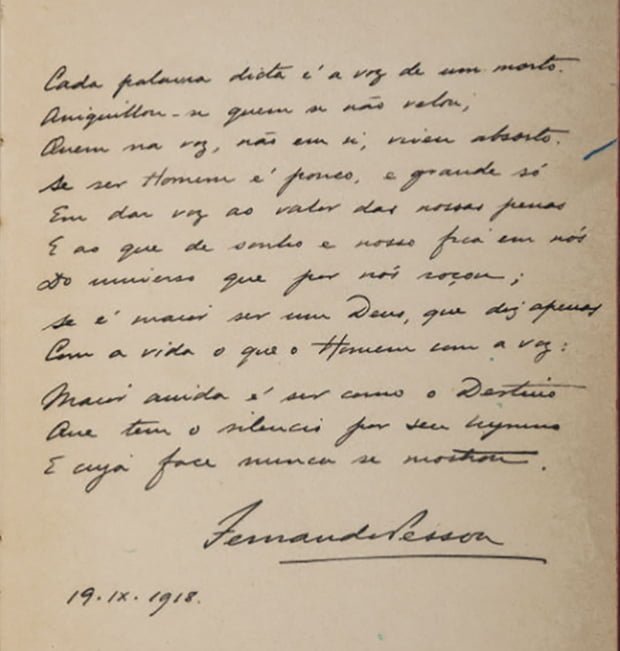 Cada palavra dicta é a voz de um morto.
Aniquillou-se quem se não velou;
Quem na voz, não em si, viveu absorto.
Se ser Homem é pouco, e grande só
Em dar voz ao valor das nossas penas
E ao que de sonho e nosso fica em nós
Do universo que por nós roçou;
Se é maior ser um Deus, que diz apenas
Com a vida o que o Homem com a voz:
Maior ainda é ser como o Destino
Que tem o silencio por seu hymno
E cuja face nunca se mostrou.
Fernando Pessoa
19.IX.1918.